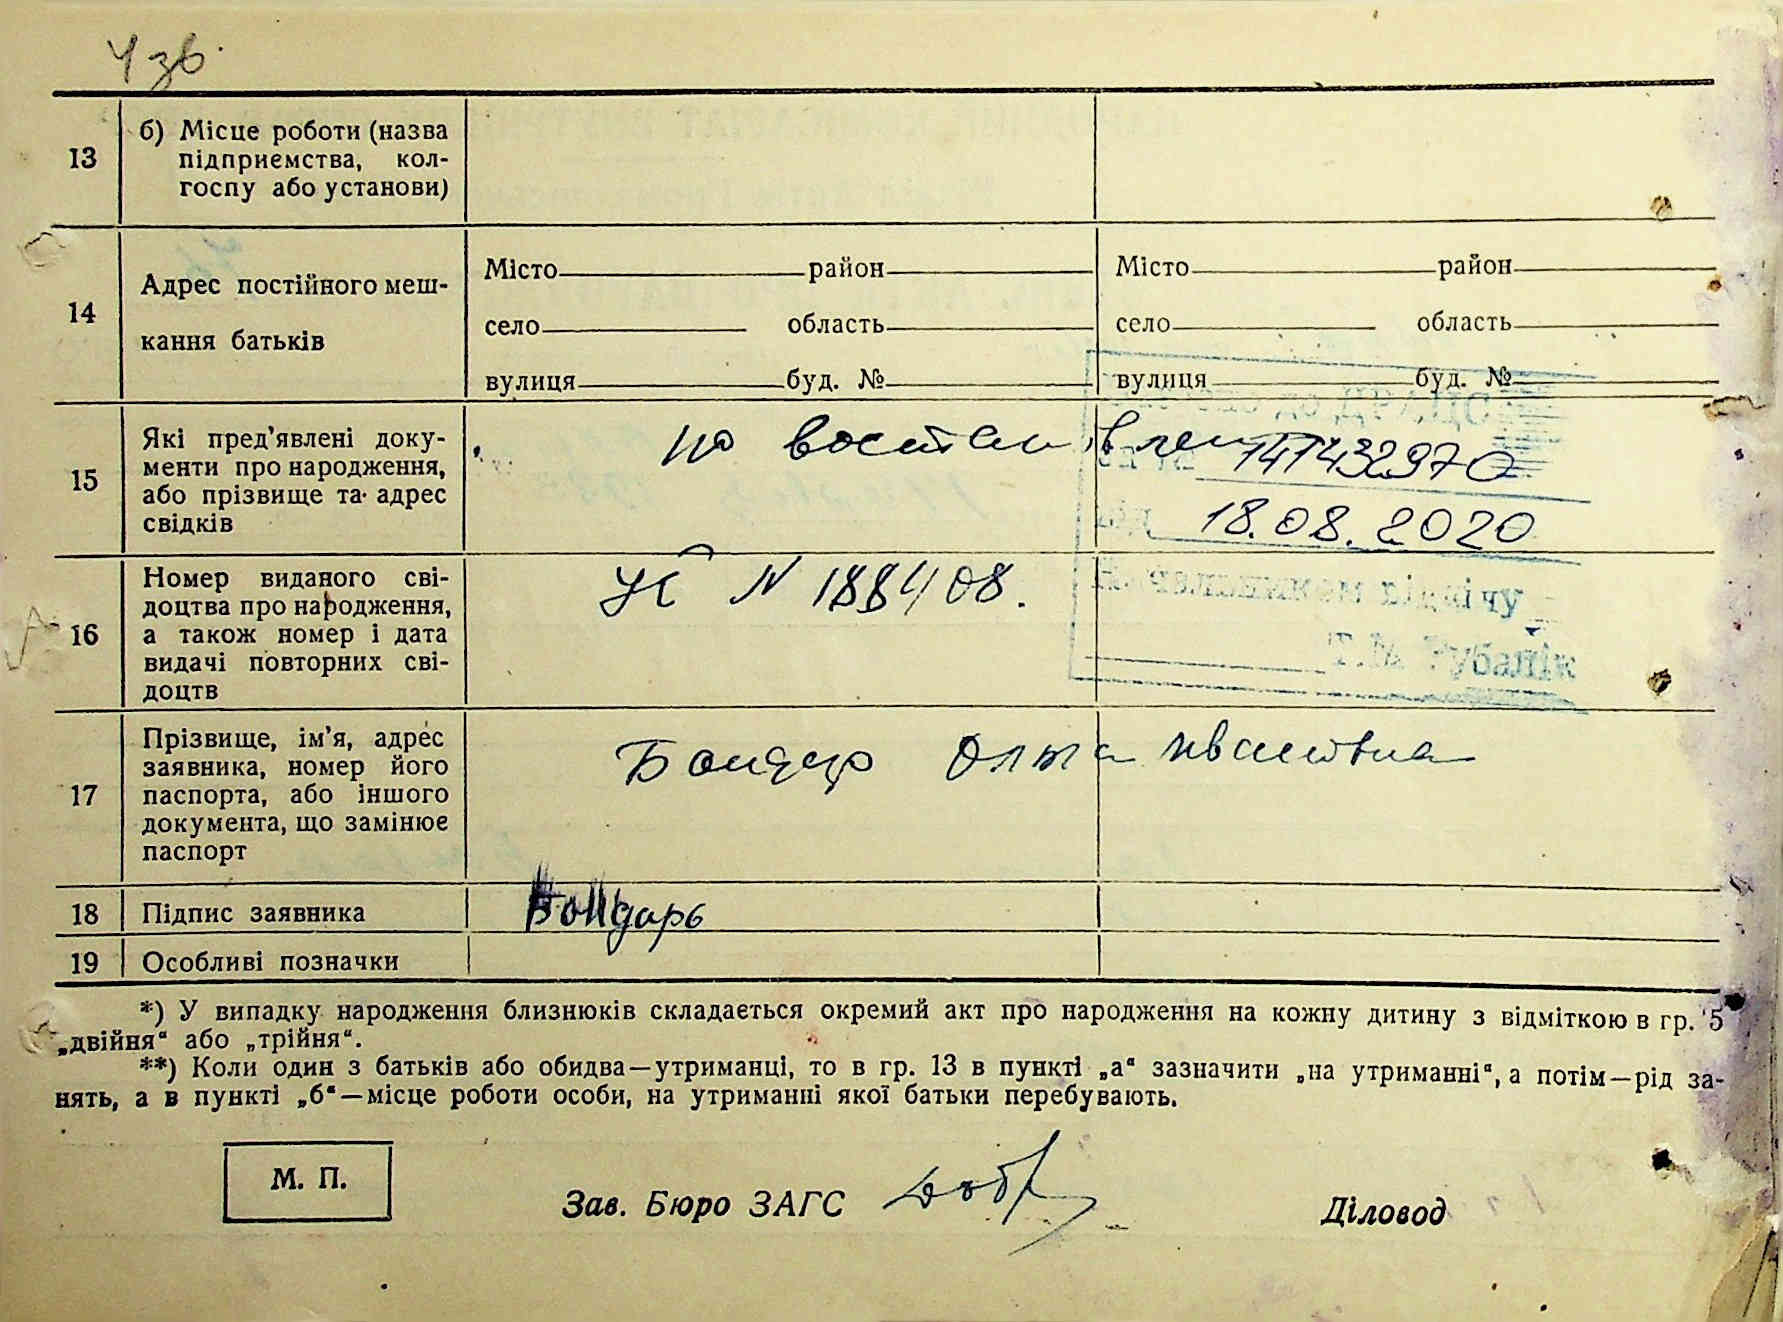 13
б) Місце роботи (назва
підприємства, кол-
госпу або установи)
14
Адрес постійного меш-
кання батьків
Місто район
село область
вулиця буд. №
Місто район
село область
вулиця буд. №
15
Які пред’явлені доку-
менти про народження,
або прізвище та адрес
свідків
по
14143297
18.08.2020
16
Номер виданого сві-
доцтва про народження,
а також номер і дата
видачі повторних сві-
доцтв
N 188408.
відділу
Рубанік
17
Прізвище, ім’я, адрес
заявника, номер його
паспорта, або іншого
документа, що замінює
паспорт
Бондар Ольга Ивановна
18
Підпис заявника
Бондарь
19
Особливі позначки
*) У випадку народження близнюків складається окремий акт про народження на кожну дитину з відміткою в гр. 5
„двійня“ або „трійня“.
**) Коли один з батьків або обидва—утриманці, то в гр. 13 в пункті „а“ зазначити „на утриманні“, а потім—рід за-
нять, а в пункті „б“—місце роботи особи, на утриманні якої батьки перебувають.
М. П.
Зав. Бюро ЗАГС
Діловод